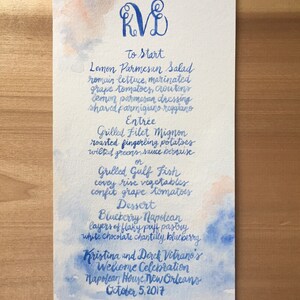 KVD
To Start
Lemon Parmesan Salad
romain lettuce, marinated
grape tomatoes, croutons
lemon parmesan dressing
shaved parmigiano reggiano
Entrée
Grilled Filet Mignon
roasted fingerling potatoes
wilted greens, sauce bernaise
or
Grilled Gulf Fish
covey rise vegetables
confit grape tomatoes
Dessert
Blueberry Napolean
layers of flaky puff pastry
white chocolate chantilly, blueberry
Kristina and Derek Volrano's
Welcome Celebration
Napolean House, New Orleans
October 5, 2017